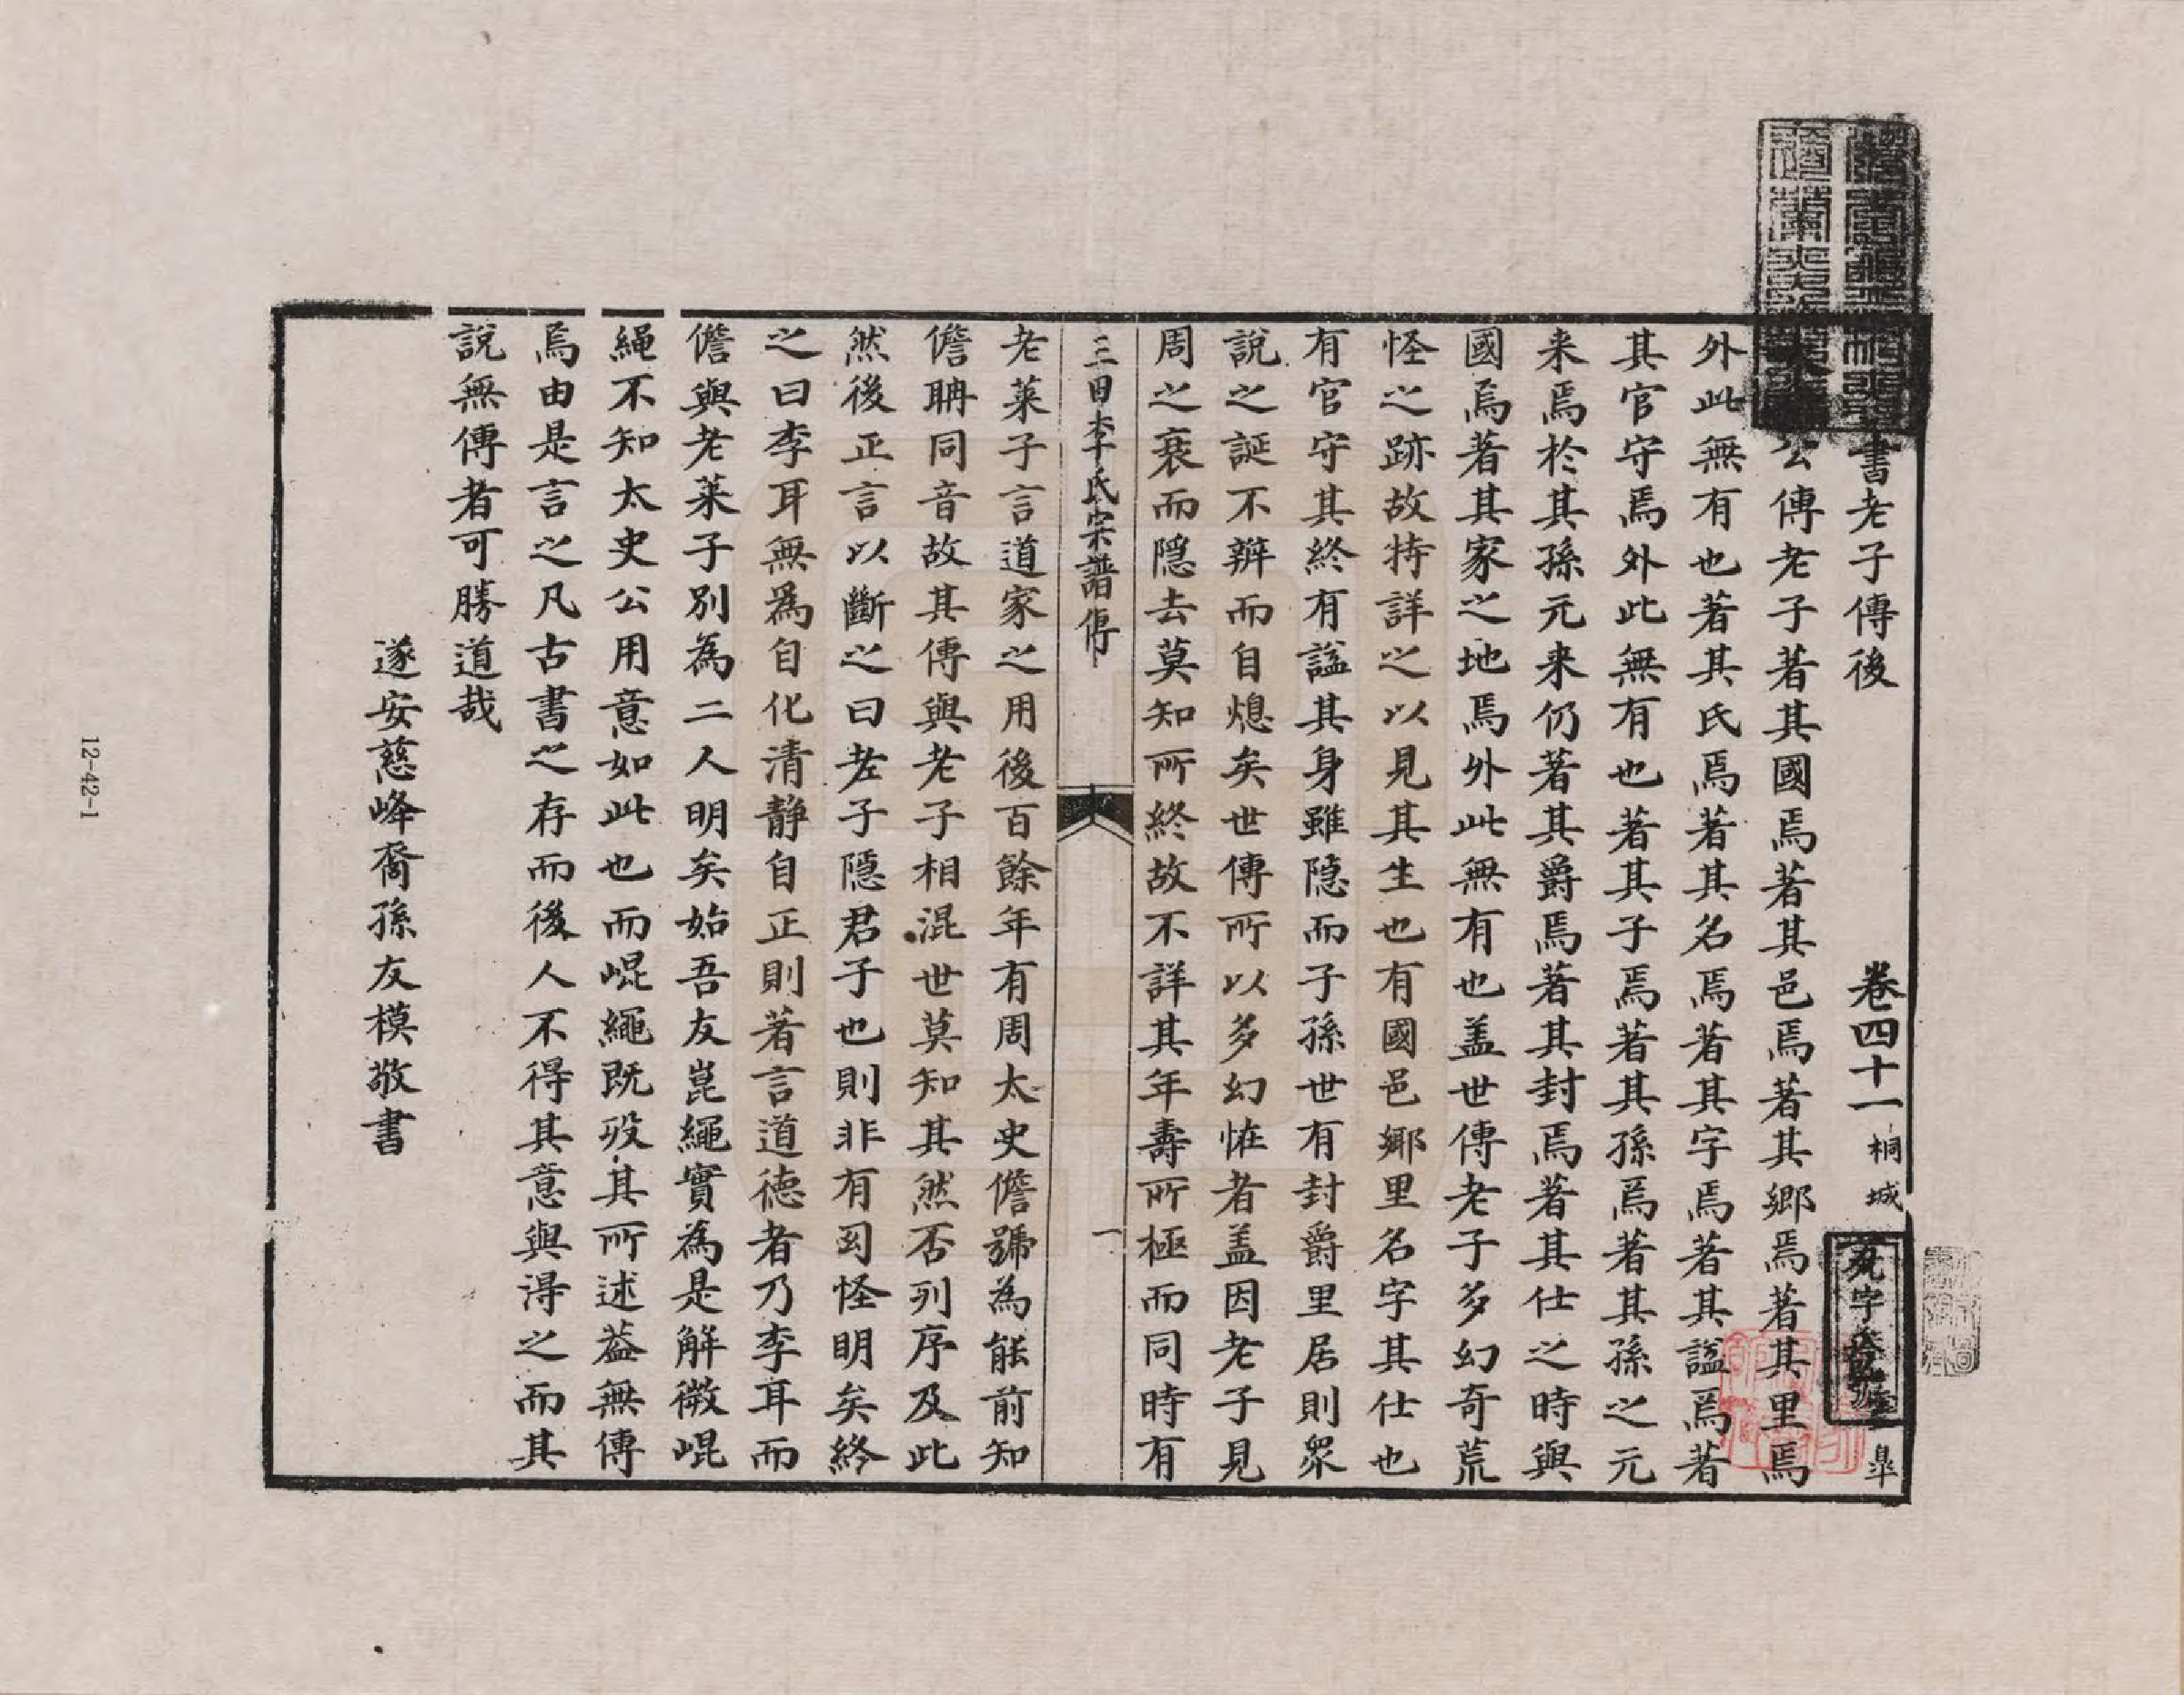 書老子傳後 卷四十一 桐城 皐
公傳老子著其國焉著其邑焉著其鄉焉著其里焉
外此無有也著其氏焉著其名焉著其字焉著其諡焉著
其官守焉外此無有也著其子焉著其孫焉著其孫之元
来焉於其孫元来仍著其爵焉著其封焉著其仕之時與
國焉著其家之地焉外此無有也盖世傳老子多幻奇荒
怪之跡故特詳之以見其生也有國邑鄉里名字其仕也
有官守其終有諡其身雖隐而子孫世有封爵里居則衆
說之誕不辨而自熄矣世傳所以多幻恠者盖因老子見
周之衰而隐去莫知所終故不詳其年壽所極而同時有
三田李氏宗譜傳 一
老莱子言道家之用後百餘年有周太史儋號為能前知
儋聃同音故其傳與老子相混世莫知其然否列序及此
然後正言以斷之曰老子隱君子也則非有囘怪明矣終
之曰李耳無爲自化清静自正則著言道德者乃李耳而
儋與老莱子別為二人明矣始吾友崑繩實為是解微崐
繩不知太史公用意如此也而崐繩既殁其所述葢無傳
焉由是言之凡古書之存而後人不得其意與淂之而其
說無傳者可勝道哉
遂安慈峰裔孫友模敬書
12-42-1